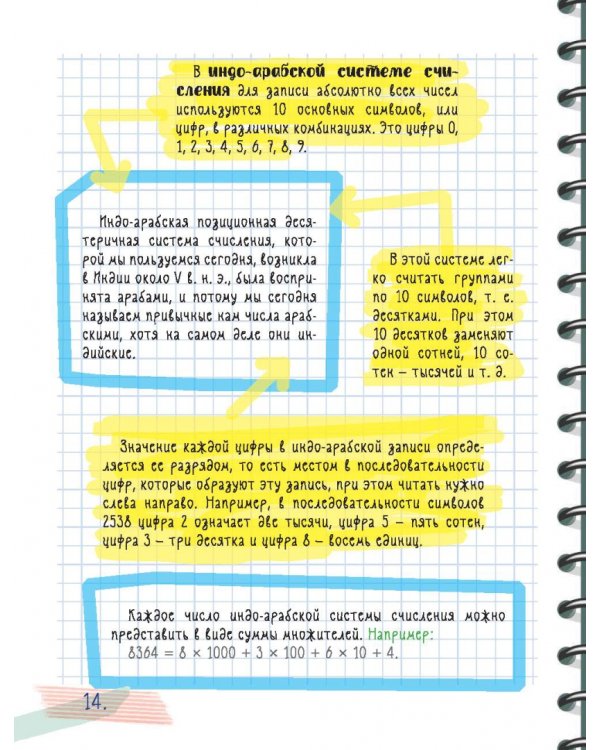 В индо-арабской системе счи-
сления для записи абсолютно всех чисел
используются 10 основных символов, или
цифр, в различных комбинациях. Это цифры 0,
1, 2, 3, 4, 5, 6, 7, 8, 9.
Индо-арабская позиционная деся-
теричная система счисления, кото-
рой мы пользуемся сегодня, возникла
в Индии около V в. н. э., была воспри-
нята арабами, и потому мы сегодня
называем привычные нам числа араб-
скими, хотя на самом деле они ин-
дийские.
В этой системе лег-
ко считать группами
по 10 символов, т. е.
десятками. При этом
10 десятков заменяют
одной сотней, 10 со-
тен – тысячей и т. д.
Значение каждой цифры в индо-арабской записи опреде-
ляется ее разрядом, то есть местом в последовательности
цифр, которые образуют эту запись, при этом читать нужно
слева направо. Например, в последовательности символов
2538 цифра 2 означает две тысячи, цифра 5 – пять сотен,
цифра 3 – три десятка и цифра 8 – восемь единиц.
Каждое число индо-арабской системы счисления можно
представить в виде суммы множителей. Например:
8364 = 8 × 1000 + 3 × 100 + 6 × 10 + 4.
14.